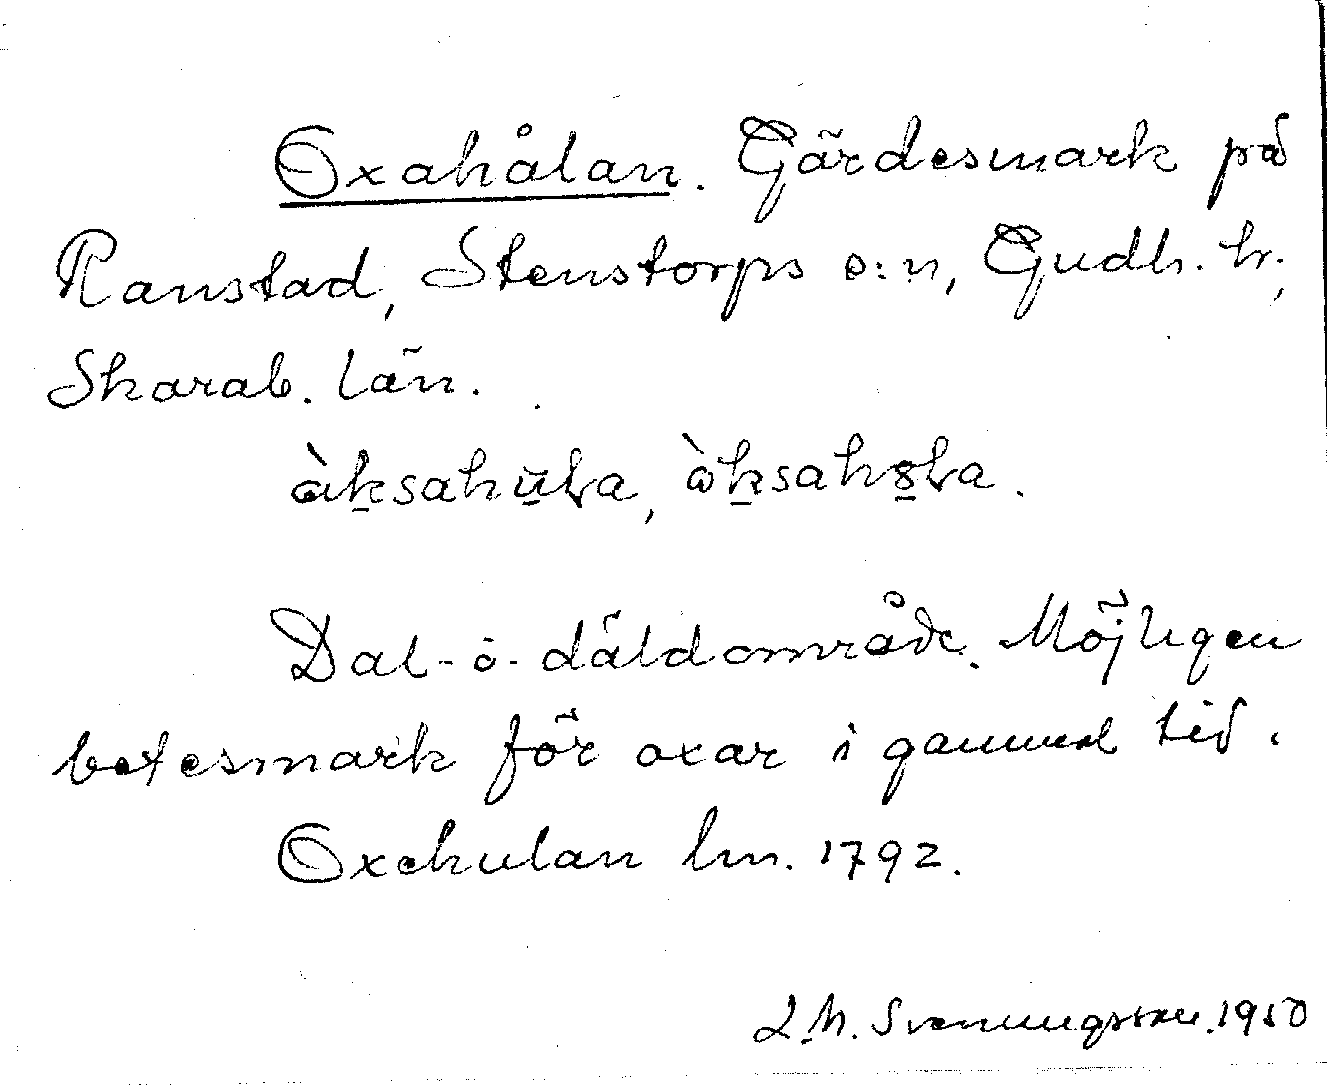 Oxahålan. Gärdesmark på
Ranstad, Stenstorps s:n, Gudh. hr.,
Skarab. län.
àksahūła, òksahła.
Dal- o. däldområde. Möjligen
betesmark för oxar i gammal tid.
Oxehulan lm. 1792.
L.M. Svenungsson. 1950